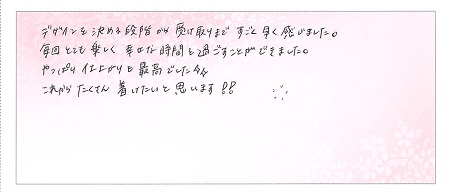 デザインを決める段階から受け取りまですごく早く感じました。
毎回とても楽しく幸せな時間を過ごすことができました。
やっぱり仕上がりも最高でした☆☆
これからたくさん着けたいと思います!!